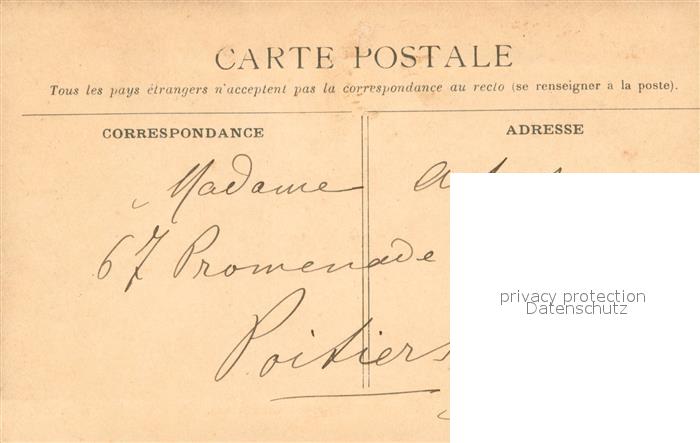 CARTE POSTALE
Tous les pays étrangers n'acceptent pas la correspondance au recto (se renseigner à la poste).
CORRESPONDANCE
ADRESSE
Madame
67 Promenade
Poitiers
privacy protection
Datenschutz